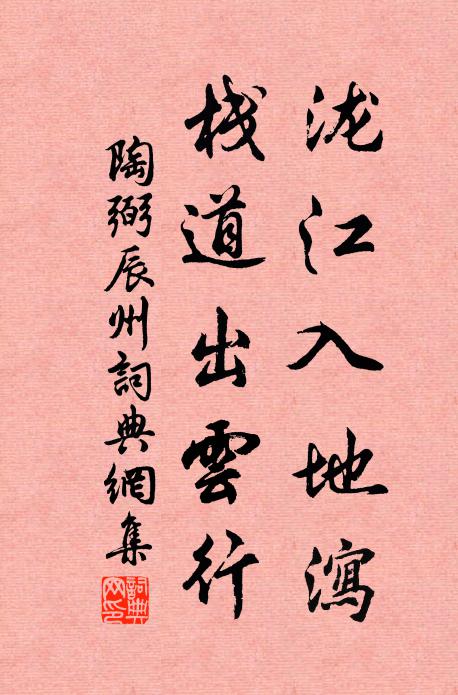 泷江入地瀉
栈道出雲行
陶弼辰州詞典網集
詞典网印